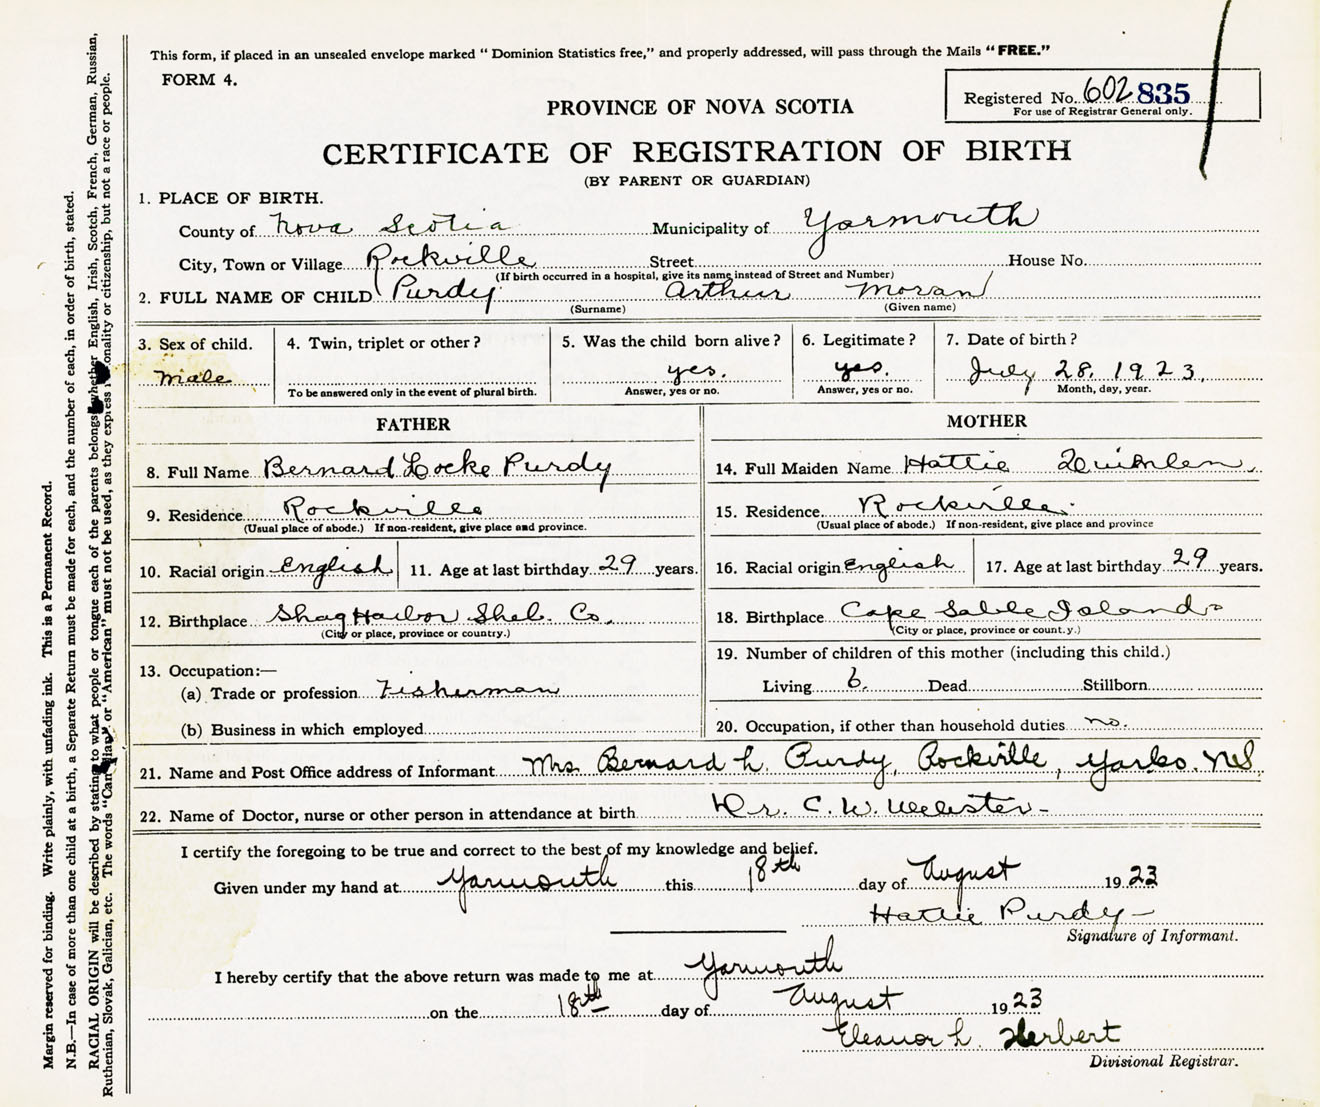 This form, if placed in an unsealed envelope marked "Dominion Statistics free," and properly addressed, will pass through the Mails "FREE."
FORM 4.
Registered No. 602 835
For use of Registrar General only.
PROVINCE OF NOVA SCOTIA
CERTIFICATE OF REGISTRATION OF BIRTH
(BY PARENT OR GUARDIAN)
1. PLACE OF BIRTH.
County of Nova Scotia Municipality of Yarmouth
City, Town or Village Rockville Street House No.
(If birth occurred in a hospital, give its name instead of Street and Number)
2. FULL NAME OF CHILD Purdy Arthur Moran
(Surname) (Given name)
3. Sex of child. 4. Twin, triplet or other? 5. Was the child born alive? 6. Legitimate? 7. Date of birth?
Male yes. yes. July 28, 1923,
To be answered only in the event of plural birth. Answer, yes or no. Answer, yes or no. Month, day, year.
FATHER
8. Full Name Bernard Locke Purdy
9. Residence Rockville
(Usual place of abode.) If non-resident, give place and province.
10. Racial origin English 11. Age at last birthday 29 years.
12. Birthplace Shag Harbor Shel. Co.
(City or place, province or country.)
13. Occupation:—
(a) Trade or profession Fisherman
(b) Business in which employed
MOTHER
14. Full Maiden Name Hattie
15. Residence Rockville.
(Usual place of abode.) If non-resident, give place and province
16. Racial origin English 17. Age at last birthday 29 years.
18. Birthplace Cape Sable Island
(City or place, province or count.y.)
19. Number of children of this mother (including this child.)
Living 6. Dead Stillborn
20. Occupation, if other than household duties no.
21. Name and Post Office address of Informant Mrs Bernard L. Purdy, Rockville, Yar. Co. N.S.
22. Name of Doctor, nurse or other person in attendance at birth Dr. C. W. Webster-
I certify the foregoing to be true and correct to the best of my knowledge and belief.
Given under my hand at Yarmouth this 18th day of August 1923
Hattie Purdy-
Signature of Informant.
I hereby certify that the above return was made to me at Yarmouth
on the 18th day of August 1923
Eleanor L. Herbert
Divisional Registrar.
Margin reserved for binding. Write plainly, with unfading ink. This is a Permanent Record.
N.B.—In case of more than one child at a birth, a Separate Return must be made for each, and the number of each, in order of birth, stated.
RACIAL ORIGIN will be described by stating to what people or tongue each of the parents belongs whether English, Irish, Scotch, French, German, Russian,
Ruthenian, Slovak, Galician, etc. The words "Canadian" or "American" must not be used, as they express nationality or citizenship, but not a race or people.